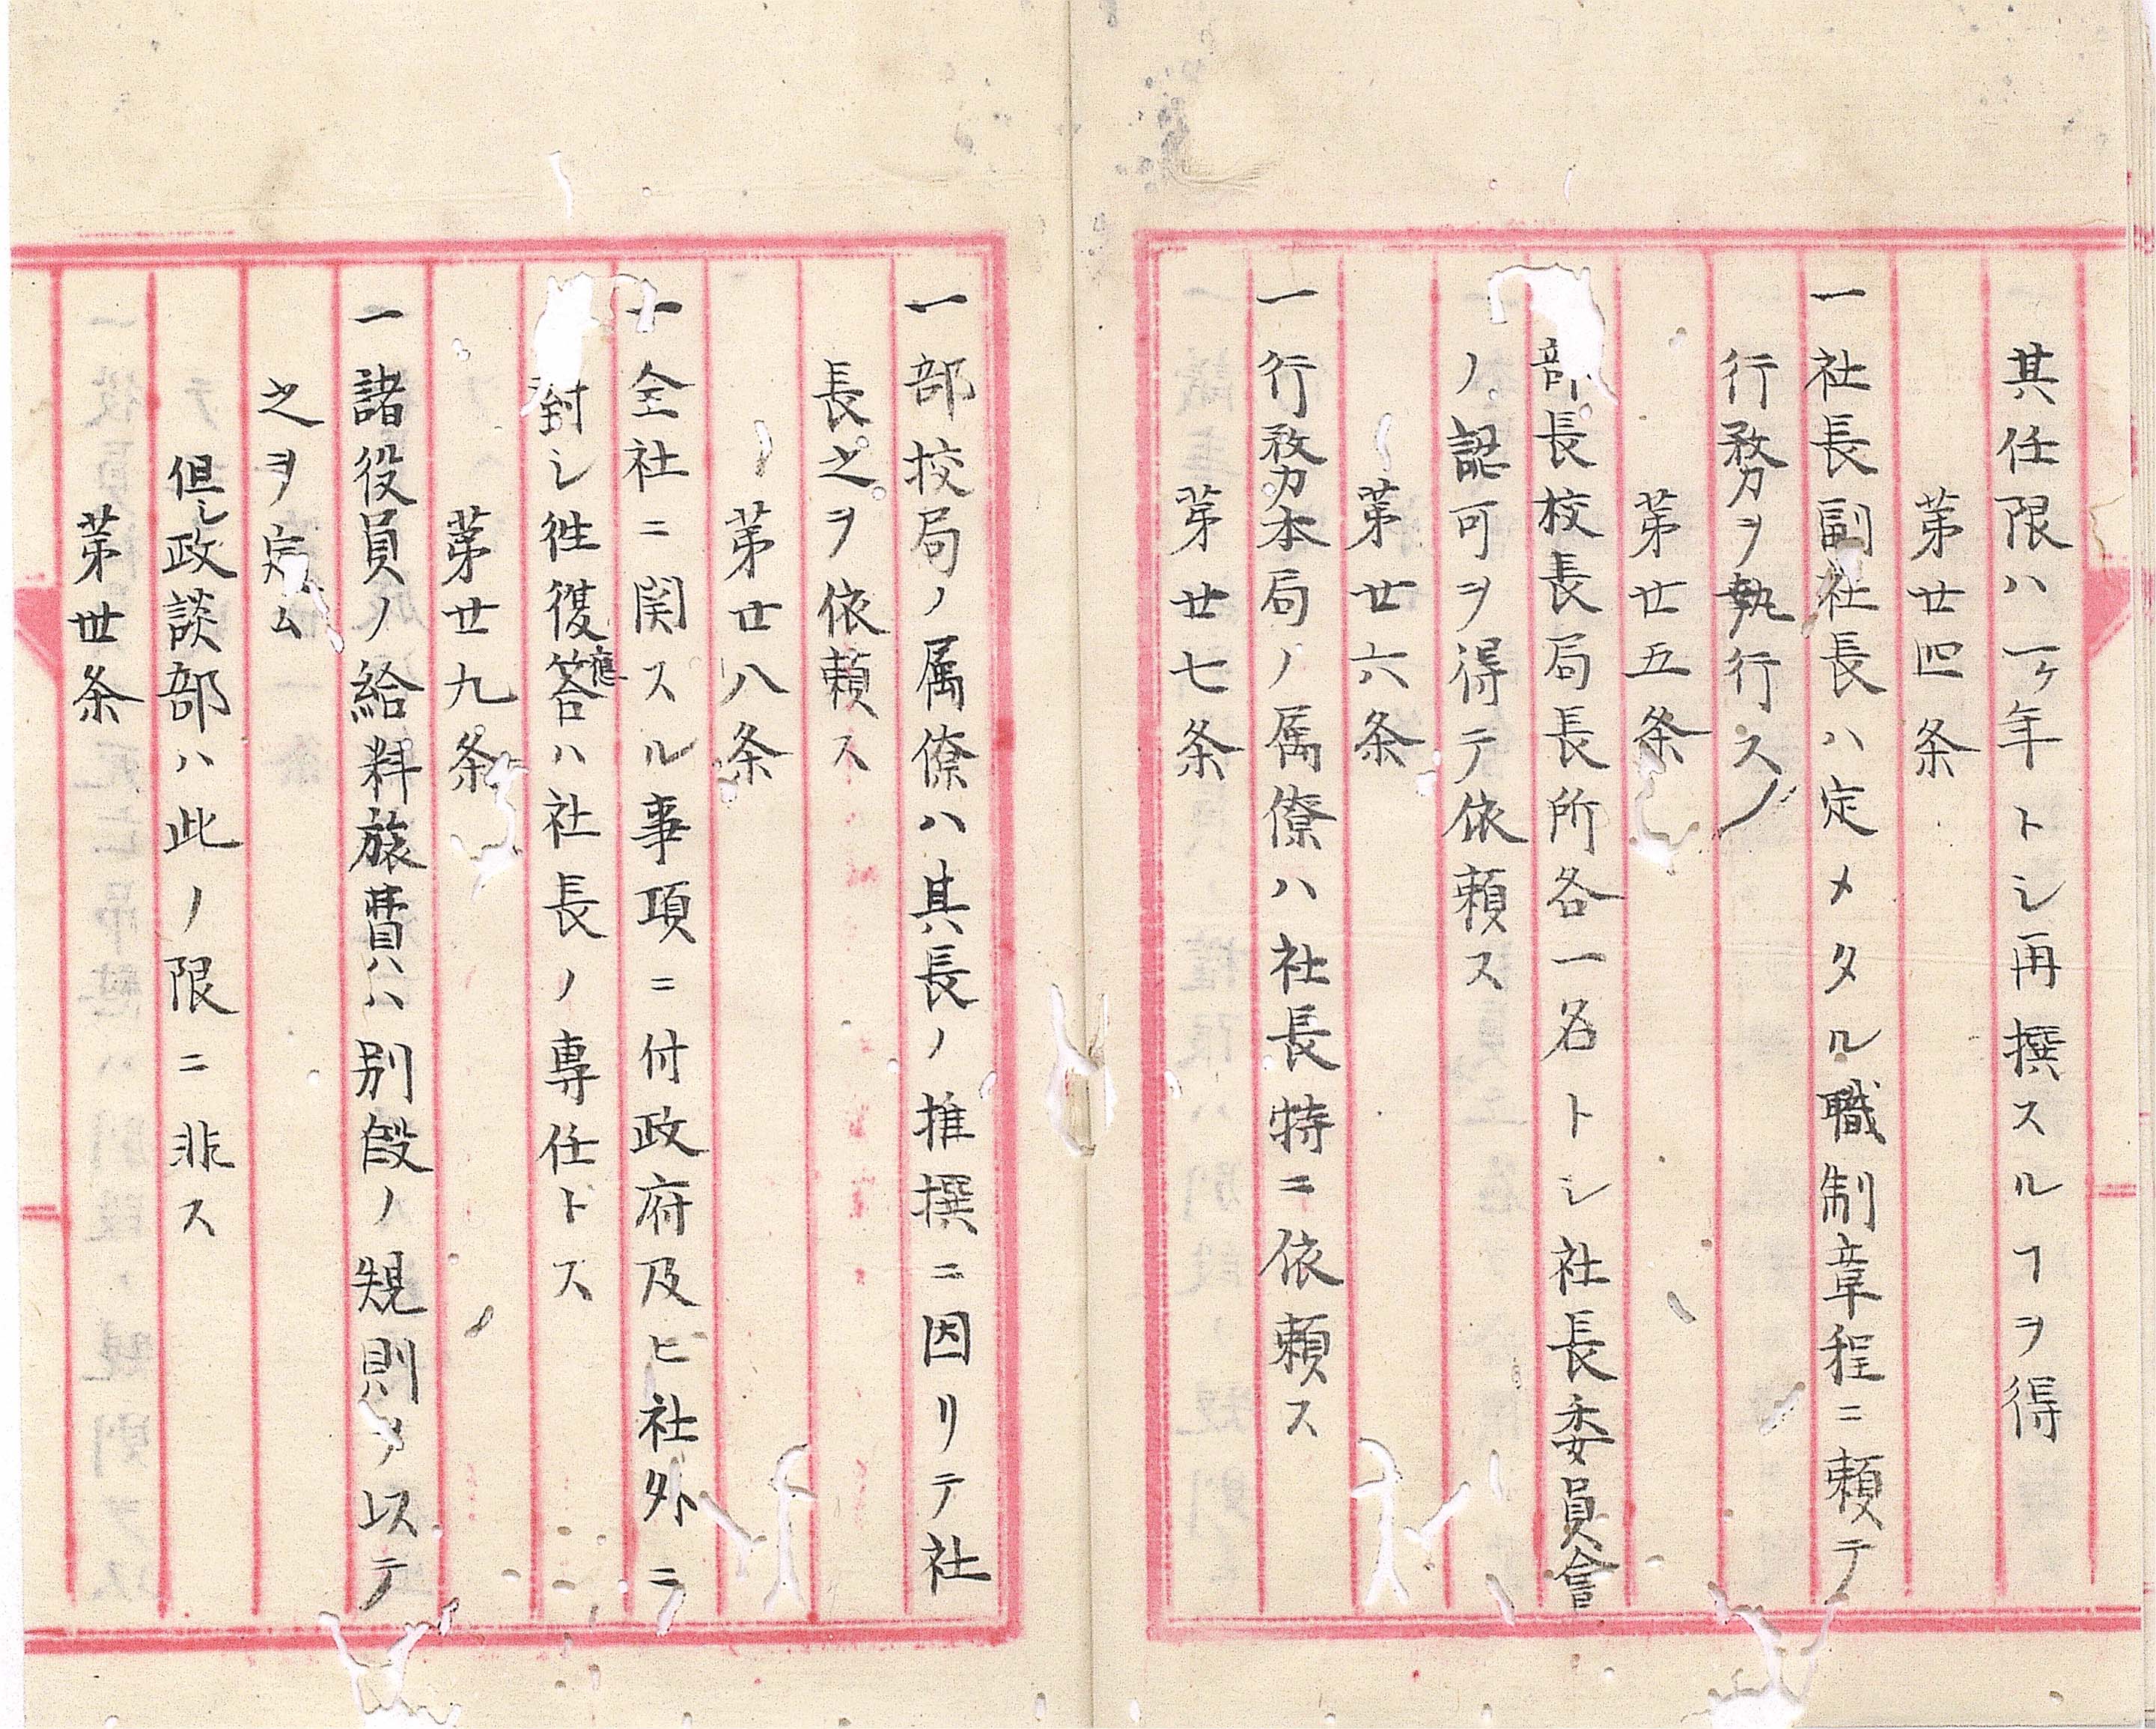 其任限ハ一ヶ年トシ再撰スルヿヲ得
第廿四条
一社長副社長ハ定メタル職制章程ニ頼テ
行務ヲ執行ス
第廿五条
部長校長局長所各一名トシ社長委員會
ノ認可ヲ得テ依頼ス
第廿六条
一行務本局ノ属僚ハ社長特ニ依頼ス
第廿七条
一部挍局ノ属僚ハ其長ノ推撰ニ因リテ社
長之ヲ依頼ス
第廿八条
一全社ニ関スル事項ニ付政府及ヒ社外ニ
對シ徃復應答ハ社長ノ専任トス
第廿九条
一諸役員ノ給料旅費ハ別段ノ規則ヲ以テ
之ヲ定ム
但シ政談部ハ此ノ限ニ非ス
第卅条